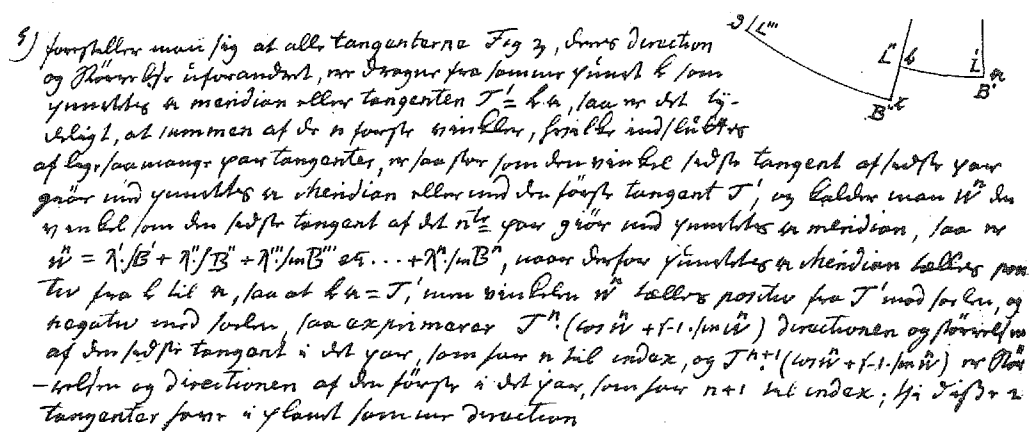 5) forestiller man sig at alle tangenterne Fig 3, deres direction
og Störrelse uforandret, er dragne fra samme punct k som
punctets n meridian eller tangenten T' = k n, saa er det ty-
deligt, at summen af de n första vinkler, hvilke indsluttes
af lige saa mange par tangenter, er saa stor som den vinkel sidste tangent af sidste par
giör med punctets n Meridian eller med den förste tangent T', og kalder man ẅ den
vinkel som den sidste tangent af det nte par giör med punctets n meridian, saa er
= λ'∫B' + λ''∫B'' + λ'''∫inB''' etc. . . . + λⁿ∫inBⁿ, naar derfor punctets n Meridian tælles posi
tiv fra k til n, saa at k n = T', men vinkelen tælles positiv fra T' mod solen, og
negativ med solen, saa exprimerer Tⁿ. (cos + √-1.∫in) directionen og störrelsen
af den sidste tangent i det par, som har n til index, og Tⁿ⁺¹.(cos + √-1.∫in) er Stör
-relsen og directionen af den förste i det par, som har n+1 til index; thi disse 2
tangenter have i planet samme direction
∂ L''' L'' b L' n
B'' t B'